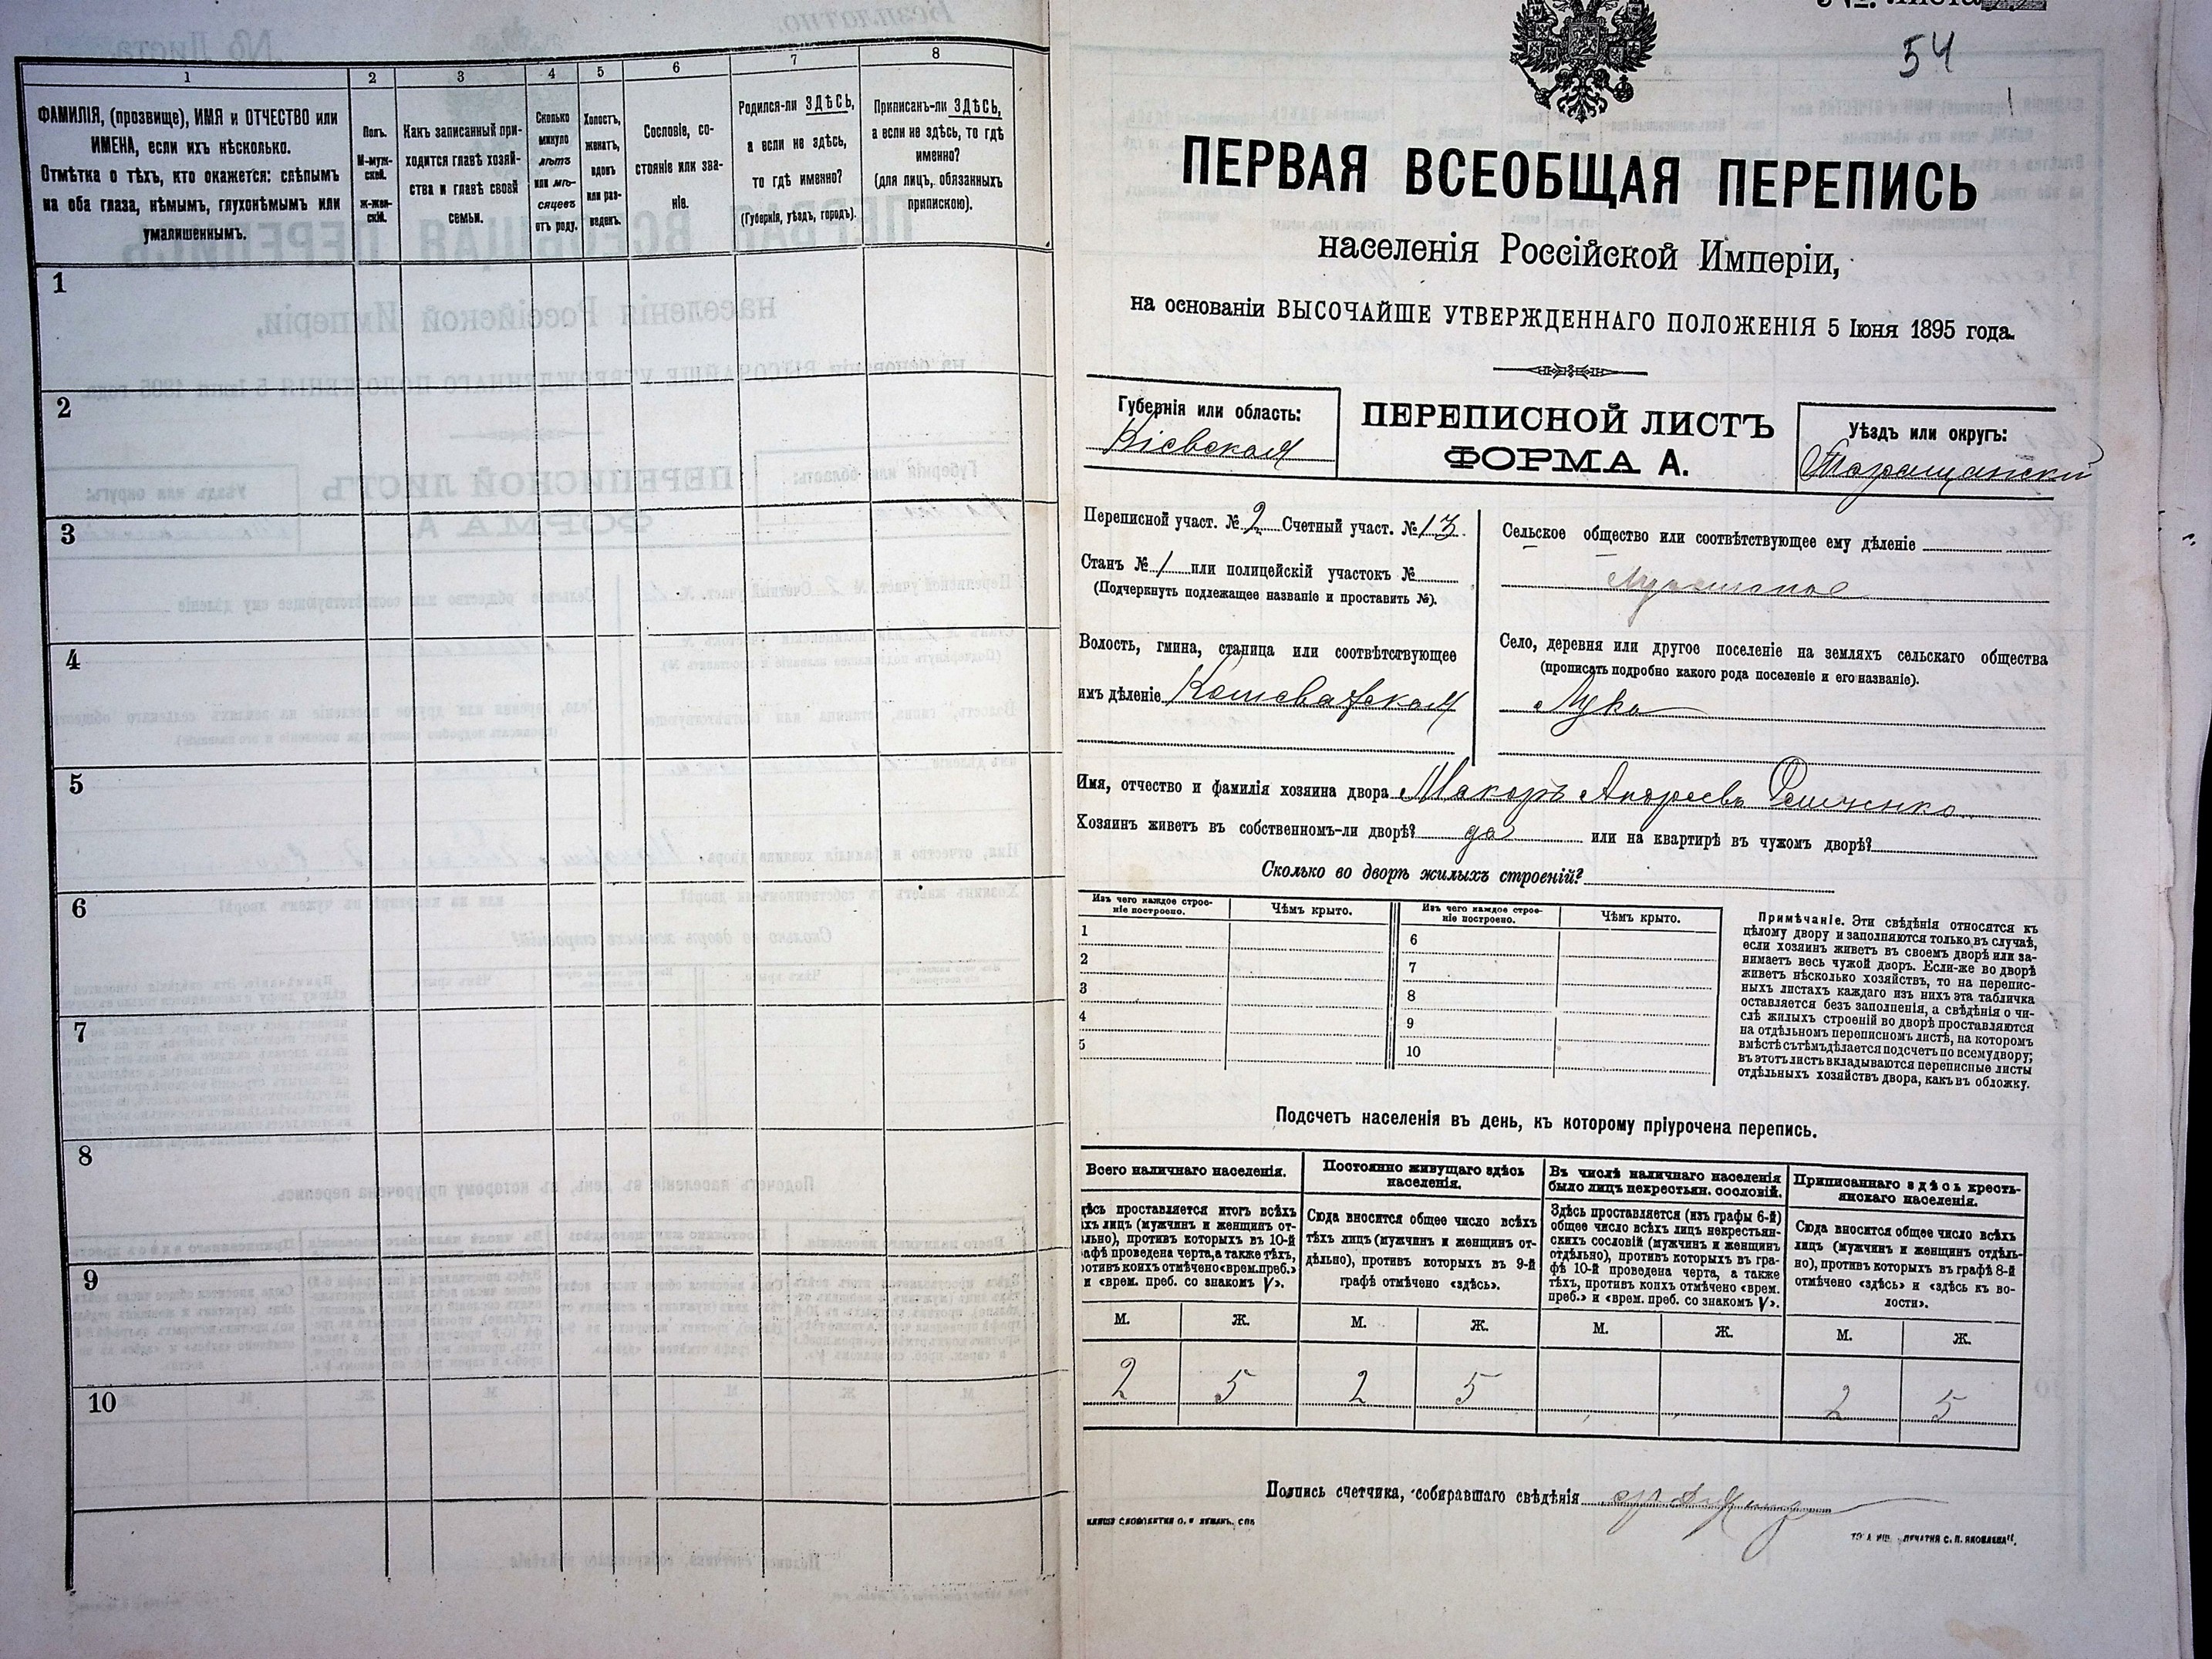 1 2 3 4 5 6 7 8
ФАМИЛІЯ, (прозвище), ИМЯ и ОТЧЕСТВО или
ИМЕНА, если ихъ нѣсколько.
Отмѣтка о тѣхъ, кто окажется: слѣпымъ
на оба глаза, нѣмымъ, глухонѣмымъ или
умалишеннымъ.
Полъ.
М-муж-
ской.
ж-жен-
скій.
Какъ записанный при-
ходится главѣ хозяй-
ства и главѣ своей
семьи.
Сколько
минуло
лѣтъ
или мѣ-
сяцевъ
отъ роду.
Холостъ,
женатъ,
вдовъ
или раз-
веденъ.
Сословіе, со-
стояніе или зва-
ніе.
Родился-ли ЗДѢСЬ,
а если не здѣсь,
то гдѣ именно?
(Губернія, уѣздъ, городъ).
Приписанъ-ли ЗДѢСЬ,
а если не здѣсь, то гдѣ
именно?
(для лицъ, обязанныхъ
припискою).
1
2
3
4
5
6
7
8
9
10
54
ПЕРВАЯ ВСЕОБЩАЯ ПЕРЕПИСЬ
населенія Россійской Имперіи,
на основаніи ВЫСОЧАЙШЕ УТВЕРЖДЕННАГО ПОЛОЖЕНІЯ 5 Іюня 1895 года.
Губернія или область:
Кіевская
ПЕРЕПИСНОЙ ЛИСТЪ
ФОРМА А.
Уѣздъ или округъ:
Таращанскій
Переписной участ. № 2 Счетный участ. № 13
Станъ № 1 или полицейскій участокъ №
(Подчеркнуть подлежащее названіе и проставить №).
Волость, гмина, станица или соотвѣтствующее
имъ дѣленіе Кошеватская
Сельское общество или соотвѣтствующее ему дѣленіе
Село, деревня или другое поселеніе на земляхъ сельскаго общества
(прописать подробно какого рода поселеніе и его названіе).
Лука
Имя, отчество и фамилія хозяина двора Макаръ Андреевъ
Хозяинъ живетъ въ собственномъ-ли дворѣ? да или на квартирѣ въ чужомъ дворѣ?
Сколько во дворѣ жилыхъ строеній?
Изъ чего каждое строе-
ніе построено.
Чѣмъ крыто.
Изъ чего каждое строе-
ніе построено.
Чѣмъ крыто.
1 6
2 7
3 8
4 9
5 10
Примѣчаніе. Эти свѣдѣнія относятся къ
цѣлому двору и заполняются только въ случаѣ,
если хозяинъ живетъ въ своемъ дворѣ или за-
нимаетъ весь чужой дворъ. Если-же во дворѣ
живетъ нѣсколько хозяйствъ, то на перепис-
ныхъ листахъ каждаго изъ нихъ эта табличка
оставляется безъ заполненія, а свѣдѣнія о чи-
слѣ жилыхъ строеній во дворѣ проставляются
на отдѣльномъ переписномъ листѣ, на которомъ
вмѣстѣ съ тѣмъ дѣлается подсчетъ по всему двору;
въ этотъ листъ вкладываются переписные листы
отдѣльныхъ хозяйствъ двора, какъ въ обложку.
Подсчетъ населенія въ день, къ которому пріурочена перепись.
Всего наличнаго населенія.
дѣсь проставляется итогъ всѣхъ
хъ лицъ (мужчинъ и женщинъ от-
льно), противъ которыхъ въ 10-й
афѣ проведена черта, а также тѣхъ,
ротивъ коихъ отмѣчено «врем. преб.»
и «врем. преб. со знакомъ V».
Постоянно живущаго здѣсь
населенія.
Сюда вносится общее число всѣхъ
тѣхъ лицъ (мужчинъ и женщинъ от-
дѣльно), противъ которыхъ въ 9-й
графѣ отмѣчено «здѣсь».
Въ числѣ наличнаго населенія
было лицъ некрестьян. сословій.
Здѣсь проставляется (изъ графы 6-й)
общее число всѣхъ лицъ некрестьян-
скихъ сословій (мужчинъ и женщинъ
отдѣльно), противъ которыхъ въ гра-
фѣ 10-й проведена черта, а также
тѣхъ, противъ коихъ отмѣчено «врем.
преб.» и «врем. преб. со знакомъ V».
Приписаннаго здѣсь кресть-
янскаго населенія.
Сюда вносится общее число всѣхъ
лицъ (мужчинъ и женщинъ отдѣль-
но), противъ которыхъ въ графѣ 8-й
отмѣчено «здѣсь» и «здѣсь въ во-
лости».
М. Ж. М. Ж. М. Ж. М. Ж.
2 5 2 5 2 5
Подпись счетчика, собиравшаго свѣдѣнія